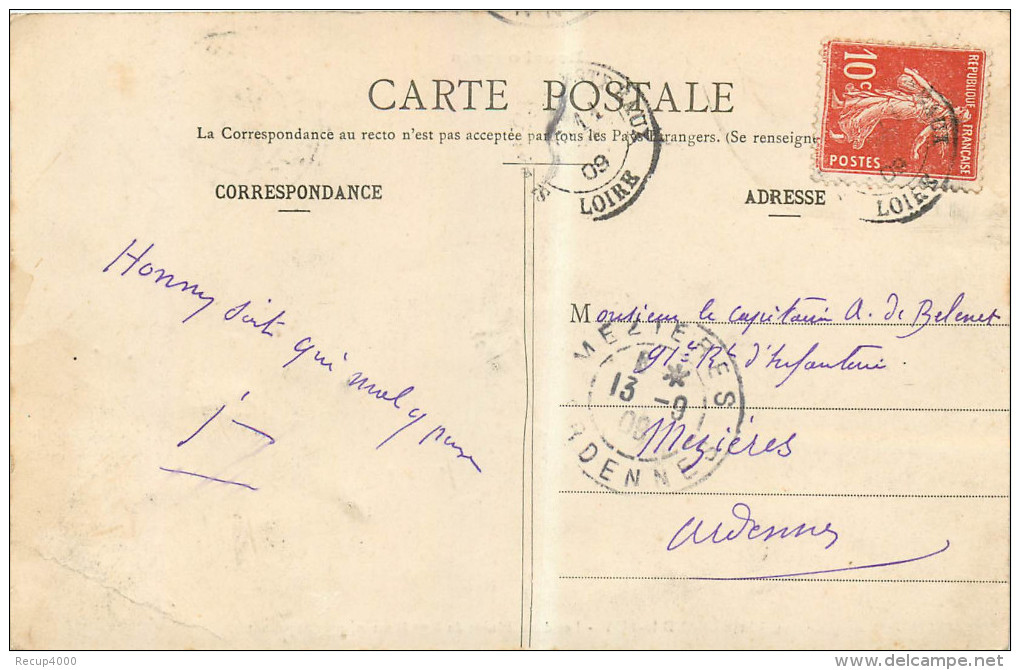 CARTE POSTALE
La Correspondance au recto n'est pas acceptée par tous les Pays Etrangers. (Se renseigne
CORRESPONDANCE
ADRESSE
REPUBLIQUE FRANCAISE
10 c
POSTES
09
LOIRE
09
LOIRE
Honny soit qui mal y pense
Monsieur le capitaine A. de Belenet
91e Rt d'Infanterie
Mezières
Ardennes
MEZIERES
13 -9
09
ARDENNES
Recup4000
delcampe.net